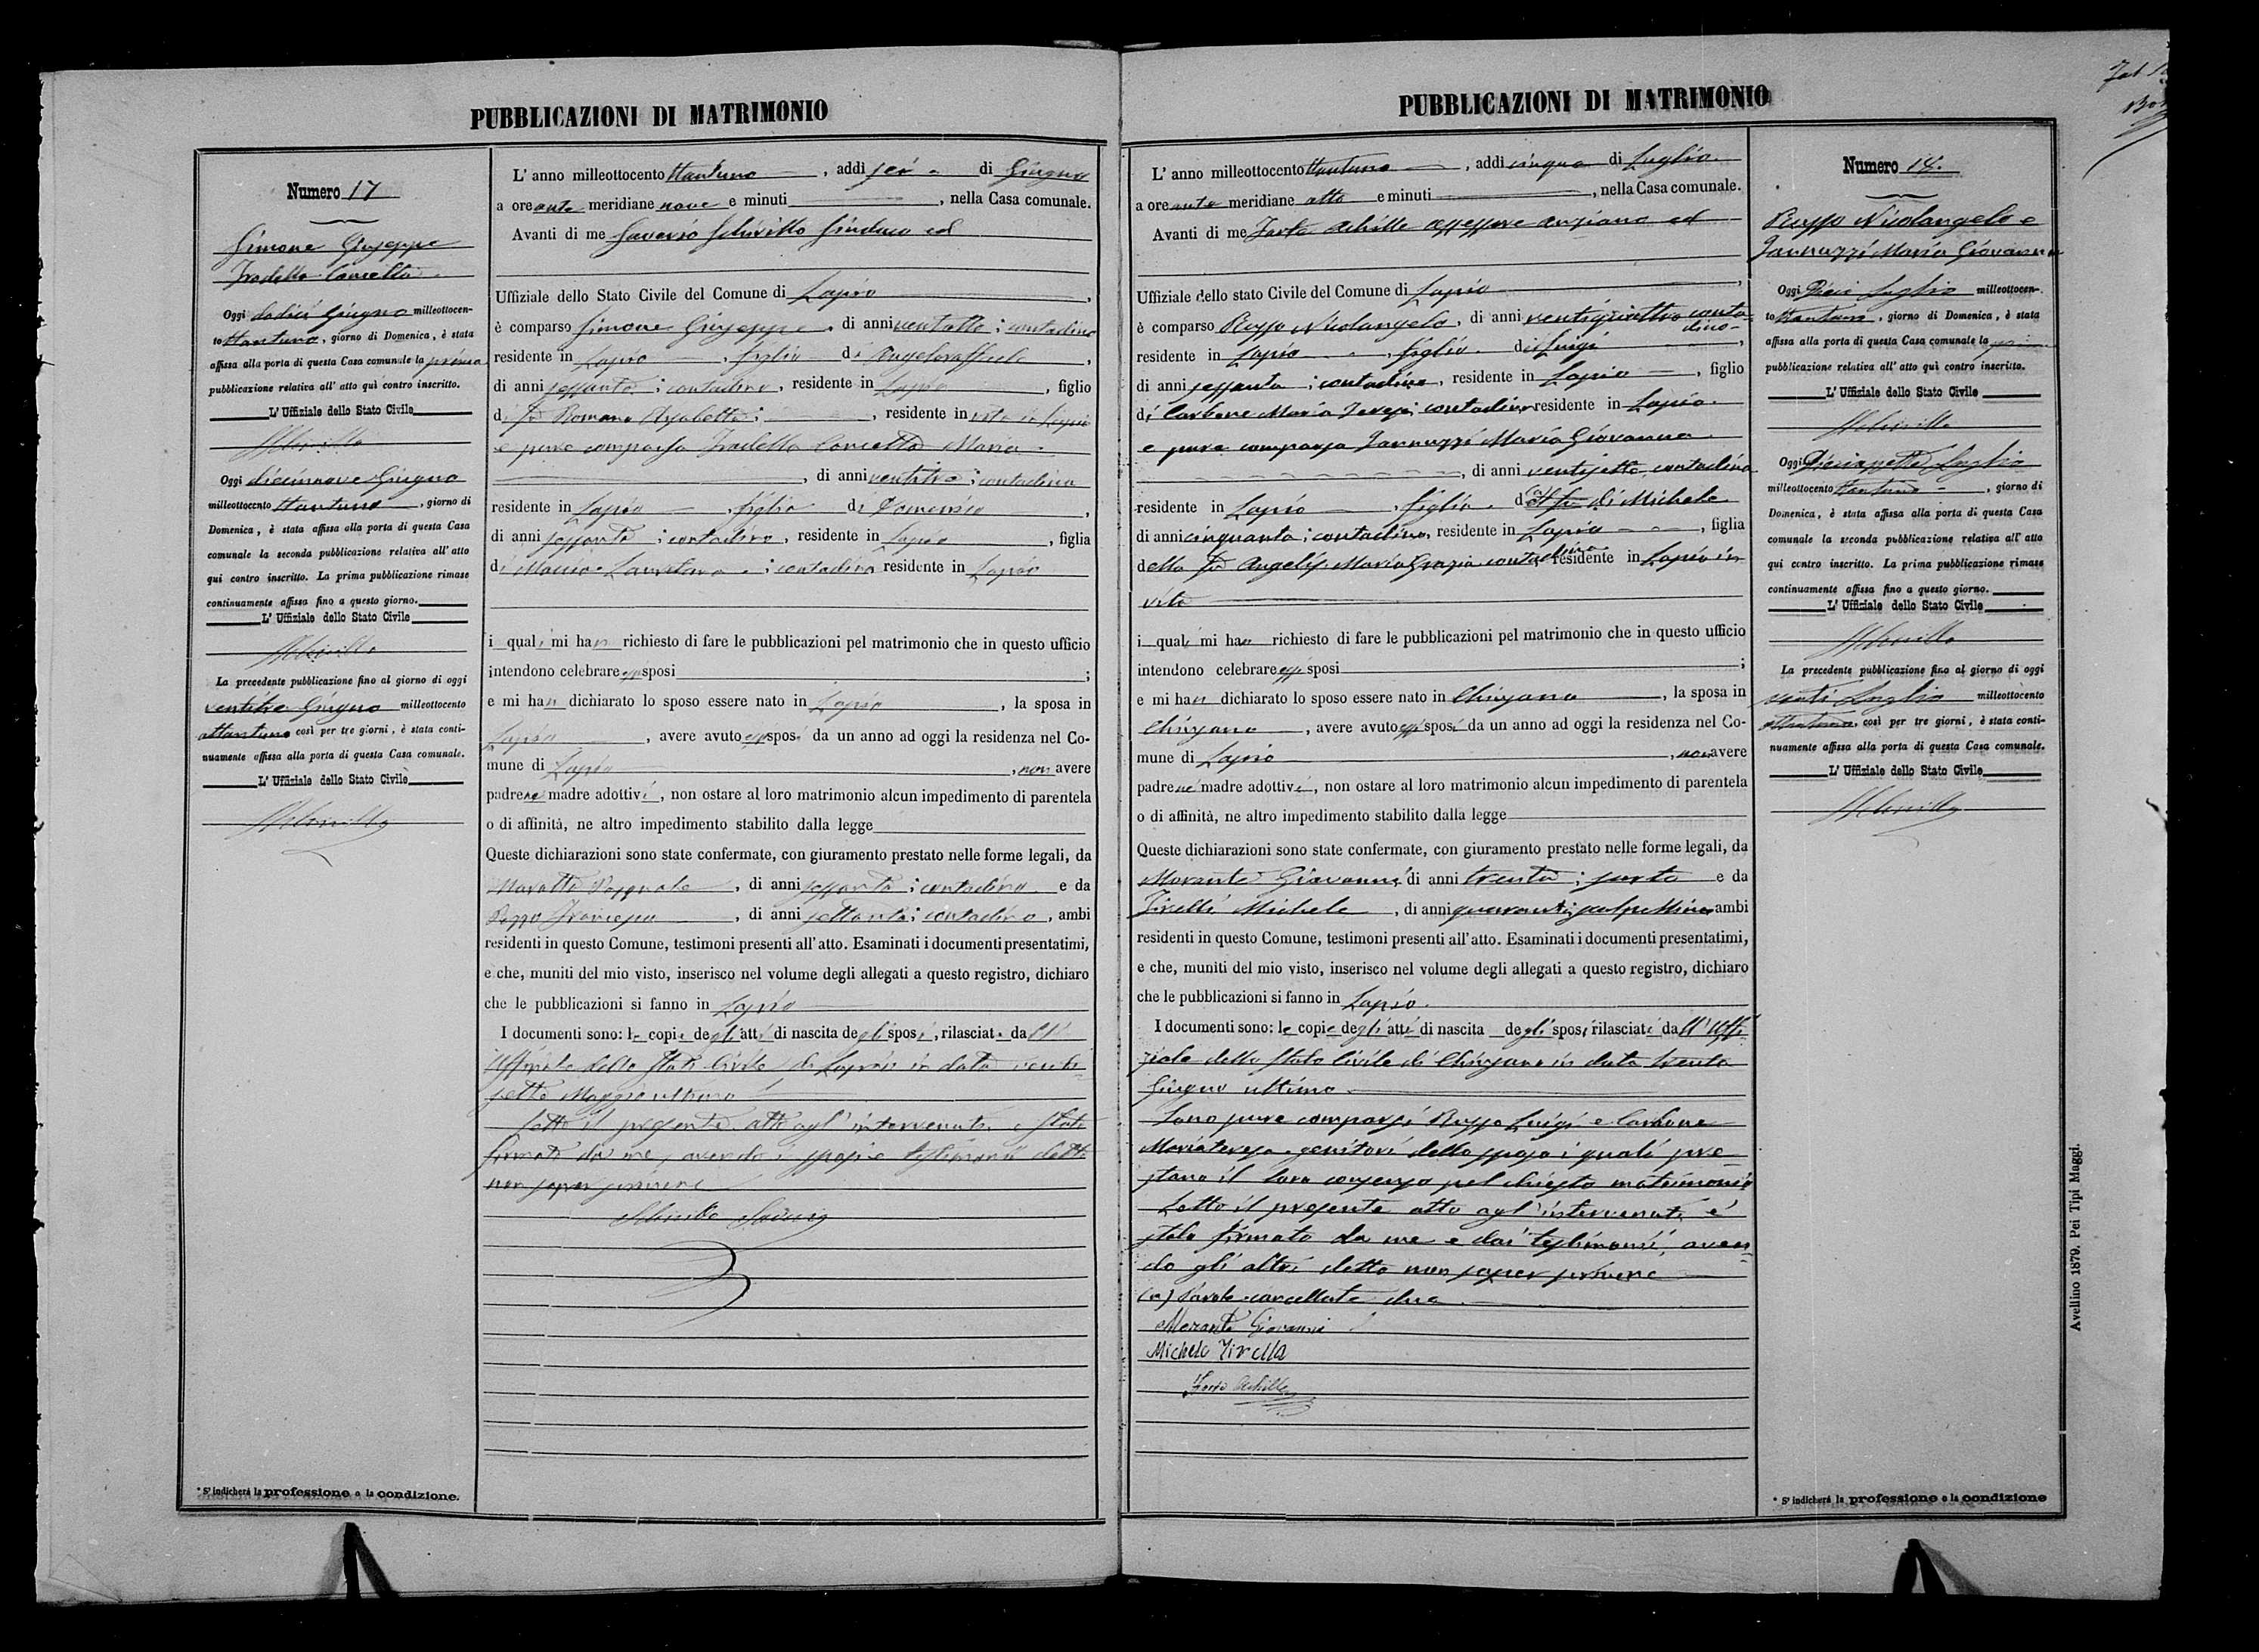 PUBBLICAZIONI DI MATRIMONIO
Numero 17
Simone Giuseppe
Iradella Concetta
Oggi dodici Giugno milleottocen-
to ttantuno, giorno di Domenica, è stata
affissa alla porta di questa Casa comunale la prima
pubblicazione relativa all' atto quì contro inscritto.
L' Uffiziale dello Stato Civile
Oggi diecinnove Giugno
milleottocento ttantuno, giorno di
Domenica, è stata affissa alla porta di questa Casa
comunale la seconda pubblicazione relativa all' atto
qui contro inscritto. La prima pubblicazione rimase
continuamente affissa fino a questo giorno.
L' Uffiziale dello Stato Civile
La precedente pubblicazione fino al giorno di oggi
ventitre Giugno milleottocento
ottantuno così per tre giorni, è stata conti-
nuamente affissa alla porta di questa Casa comunale.
L' Uffiziale dello Stato Civile
* S' indicherà la professione o la condizione.
L' anno milleottocento ttantuno, addì sei di Giugno
a ore ante meridiane nove e minuti, nella Casa comunale.
Avanti di me Saverio Schiritto Sindaco ed
Uffiziale dello Stato Civile del Comune di Lapio,
è comparso Simone Giuseppe, di anni ventotto; contadino
residente in Lapio, figlio di Angeloraffaele,
di anni sessanta; contadino, residente in Lapio, figlio
di fu Romano Elisabetta;, residente in vita in Lapio
e pure comparsa Iradella Concetta Maria
, di anni ventitre; contadina
residente in Lapio, figlia di Domenico,
di anni sessanta; contadino, residente in Lapio, figlia
di Lauretana; contadina residente in Lapio
i quali mi han richiesto di fare le pubblicazioni pel matrimonio che in questo ufficio
intendono celebrare essi sposi;
e mi han dichiarato lo sposo essere nato in Lapio, la sposa in
Lapio, avere avuto essi sposi da un anno ad oggi la residenza nel Co-
mune di Lapio, non avere
padre nè madre adottivi, non ostare al loro matrimonio alcun impedimento di parentela
o di affinità, ne altro impedimento stabilito dalla legge
Queste dichiarazioni sono state confermate, con giuramento prestato nelle forme legali, da
Pasquale, di anni sessanta; contadino e da
Francesco, di anni settanta; contadino, ambi
residenti in questo Comune, testimoni presenti all' atto. Esaminati i documenti presentatimi,
e che, muniti del mio visto, inserisco nel volume degli allegati a questo registro, dichiaro
che le pubblicazioni si fanno in Lapio
I documenti sono: le copie degli atti di nascita degli sposi, rilasciate dall'
Uffiziale dello Stato Civile di Lapio in data venti-
sette Maggio ultimo
Letto il presente atto agl' intervenuti è stato
firmato da me, avendo i sposi e testimonii detto
non saper firmare
PUBBLICAZIONI DI MATRIMONIO
L' anno milleottocento ttantuno, addì cinque di Luglio
a ore ante meridiane otto e minuti, nella Casa comunale.
Avanti di me Forte Achille assessore anziano ed
Uffiziale dello stato Civile del Comune di Lapio,
è comparso Russo Nicolangelo, di anni ventiquattro conta-
dino
residente in Lapio, figlio di Luigi,
di anni sessanta; contadino, residente in Lapio, figlio
di Carbone Maria Teresa; contadina residente in Lapio
e pure comparsa Iannuzzi Maria Giovanna
, di anni ventisette contadina
residente in Lapio, figlia di Michele
di anni cinquanta; contadino, residente in Lapio, figlia
della fu Angelis Maria Grazia contadina residente in Lapio in
vita
i quali mi han richiesto di fare le pubblicazioni pel matrimonio che in questo ufficio
intendono celebrare essi sposi;
e mi han dichiarato lo sposo essere nato in Chiusano, la sposa in
Chiusano, avere avuto essi sposi da un anno ad oggi la residenza nel Co-
mune di Lapio, non avere
padre nè madre adottivi, non ostare al loro matrimonio alcun impedimento di parentela
o di affinità, ne altro impedimento stabilito dalla legge
Queste dichiarazioni sono state confermate, con giuramento prestato nelle forme legali, da
Morante Giovanni di anni trenta; sarto e da
Tirelli Michele, di anni quaranta; ambi
residenti in questo Comune, testimoni presenti all' atto. Esaminati i documenti presentatimi,
e che, muniti del mio visto, inserisco nel volume degli allegati a questo registro, dichiaro
che le pubblicazioni si fanno in Lapio.
I documenti sono: le copie degli atti di nascita degli sposi rilasciati dall' Uffi-
ziale dello Stato Civile di Chiusano in data trenta
Giugno ultimo
Sono pure comparsi Russo Luigi e Carbone
Mariateresa genitori dello sposo i quali pre-
stano il loro consenso pel chiesto matrimonio
Letto il presente atto agl' intervenuti è
stato firmato da me e dai testimonii, aven-
do gli altri detto non saper firmare
(a) Parole cancellate due
Morante Giovanni
Michele Tirella
Forte Achille
Numero 18.
Russo Nicolangelo e
Iannuzzi Maria Giovanna
Oggi Dieci Luglio milleottocen-
to ttantuno, giorno di Domenica, è stata
affissa alla porta di questa Casa comunale la prima
pubblicazione relativa all' atto quì contro inscritto.
L' Uffiziale dello Stato Civile
Oggi Diciassette Luglio
milleottocento ttantuno, giorno di
Domenica, è stata affissa alla porta di questa Casa
comunale la seconda pubblicazione relativa all' atto
qui contro inscritto. La prima pubblicazione rimase
continuamente affissa fino a questo giorno.
L' Uffiziale dello Stato Civile
La precedente pubblicazione fino al giorno di oggi
venti Luglio milleottocento
ottantuno, così per tre giorni, è stata conti-
nuamente affissa alla porta di questa Casa comunale.
L' Uffiziale dello Stato Civile
* S' indicherà la professione o la condizione
Avellino 1879. Pei Tipi Maggi.